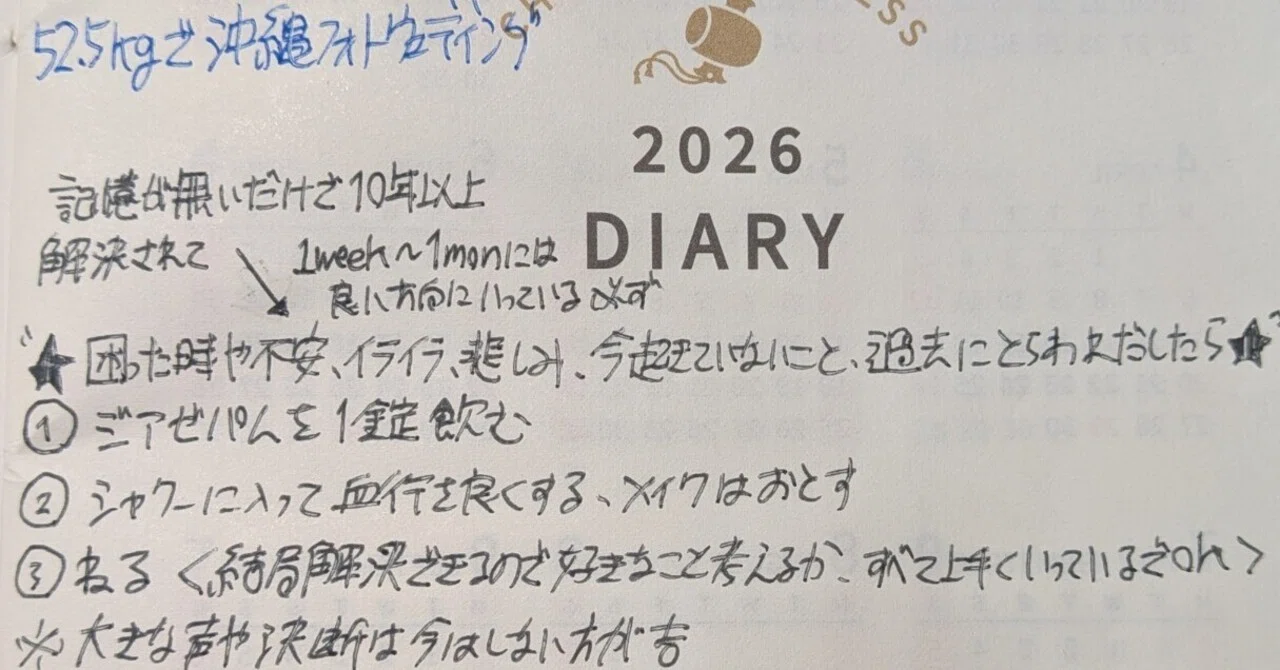 52.5kgで沖縄フォトウェディング
2026
DIARY
記憶が無いだけで10年以上
解決されて
1week～1monには
良い方向にいっている必ず
“★困った時や不安、イライラ、悲しみ、今起きていないこと、過去にとらわれだしたら★”
① ジアゼパムを1錠飲む
② シャワーに入って血行を良くする、メイクはおとす
③ ねる＜結局解決できるので好きなこと考えるか、すべて上手くいっているでOK＞
※ 大きな声や決断は今はしない方が吉